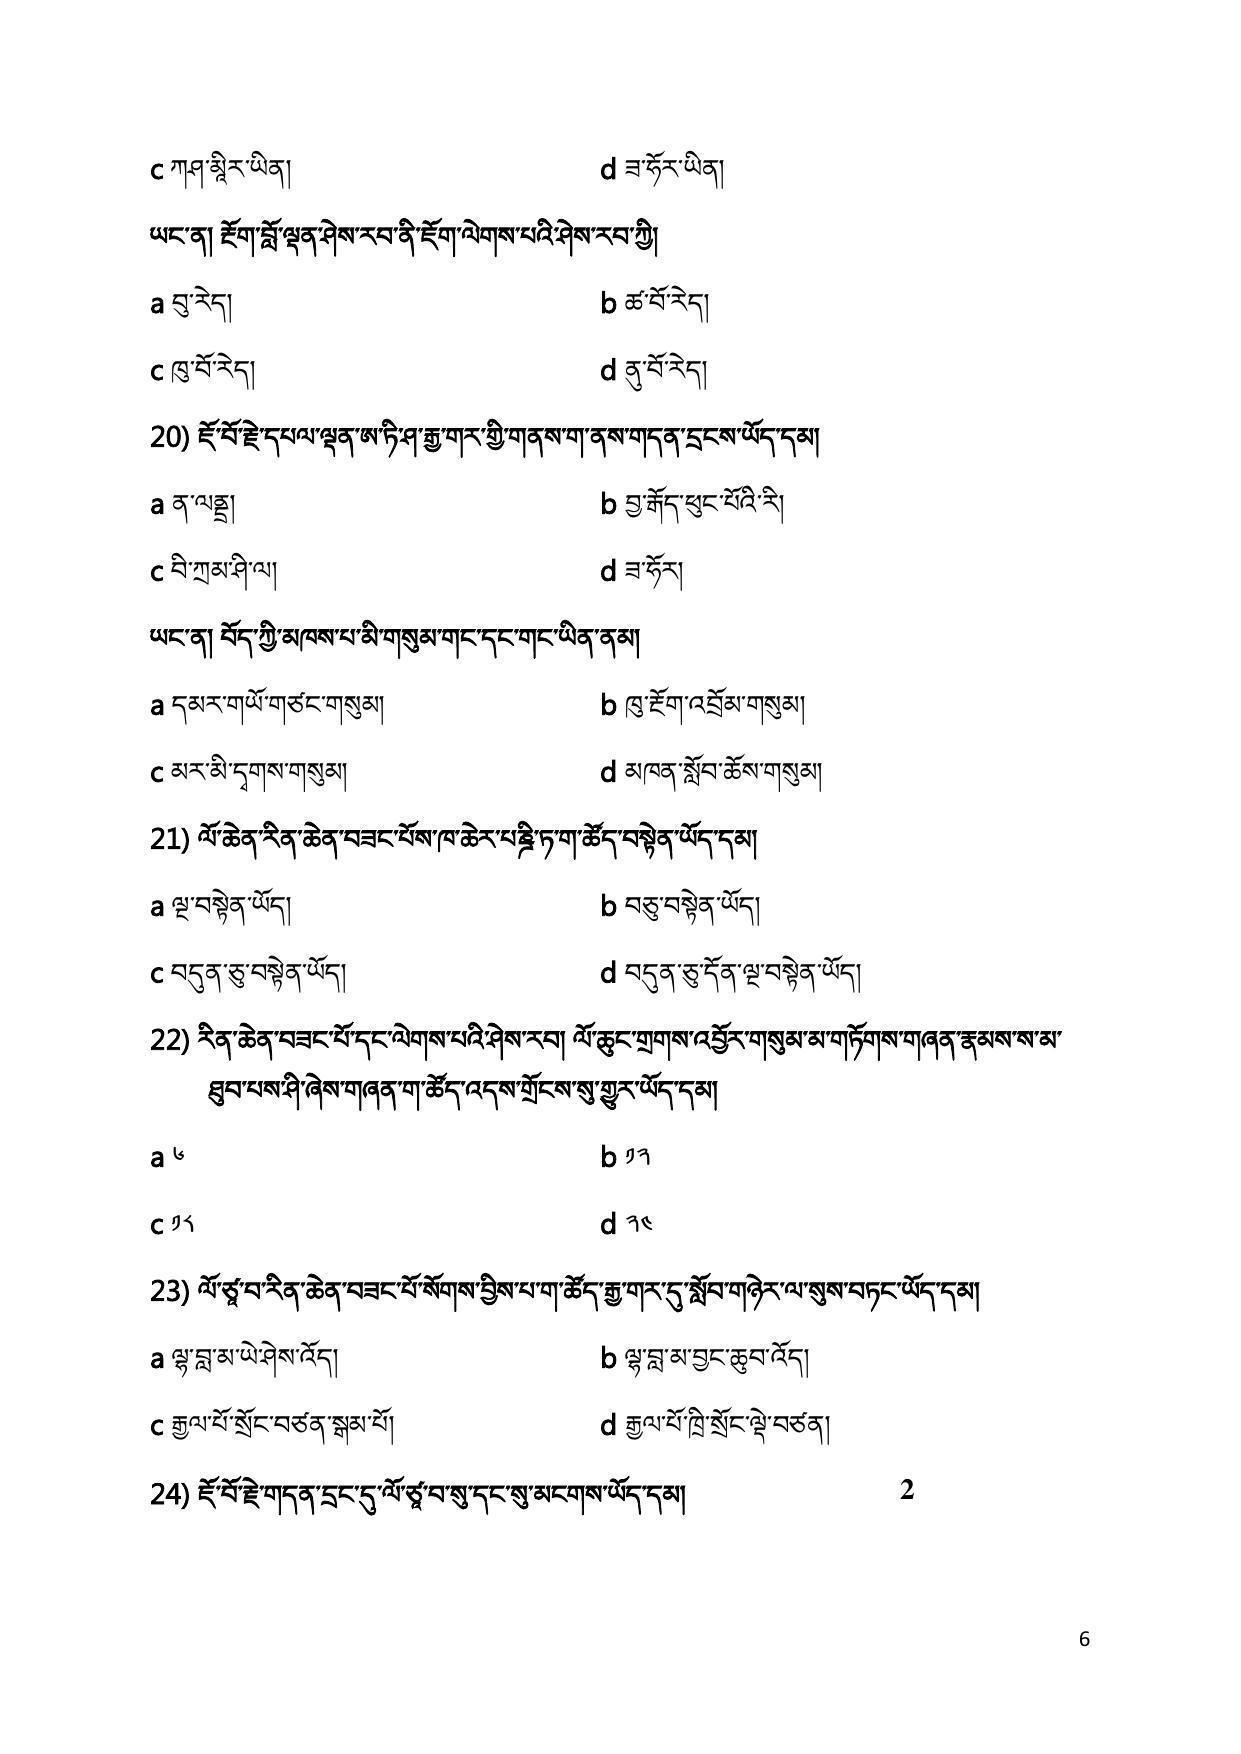 c ཀཤ་མཱིར་ཡིན།	d ཟ་ཧོར་ཡིན།
ཡང་ན། རྔོག་བློ་ལྡན་ཤེས་རབ་ནི་རྔོག་ལེགས་པའི་ཤེས་རབ་ཀྱི།
a བུ་རེད།	b ཚ་བོ་རེད།
c ཁུ་བོ་རེད།	d ནུ་བོ་རེད།
20) ཇོ་བོ་རྗེ་དཔལ་ལྡན་ཨ་ཏི་ཤ་རྒྱ་གར་གྱི་གནས་ག་ནས་གདན་དྲངས་ཡོད་དམ།
a ན་ལནྡྲ།	b བྱ་རྒོད་ཕུང་པོའི་རི།
c བི་ཀྲམ་ཤི་ལ།	d ཟ་ཧོར།
ཡང་ན། བོད་ཀྱི་མཁས་པ་མི་གསུམ་གང་དང་གང་ཡིན་ནམ།
a དམར་གཡོ་གཙང་གསུམ།	b ཁུ་རྔོག་འབྲོམ་གསུམ།
c མར་མི་དྭགས་གསུམ།	d མཁན་སློབ་ཆོས་གསུམ།
21) ལོ་ཆེན་རིན་ཆེན་བཟང་པོས་ཁ་ཆེར་པཎྜི་ཏ་ག་ཚོད་བསྟེན་ཡོད་དམ།
a ལྔ་བསྟེན་ཡོད།	b བཅུ་བསྟེན་ཡོད།
c བདུན་ཅུ་བསྟེན་ཡོད།	d བདུན་ཅུ་དོན་ལྔ་བསྟེན་ཡོད།
22) རིན་ཆེན་བཟང་པོ་དང་ལེགས་པའི་ཤེས་རབ། ལོ་ཆུང་གྲགས་འབྱོར་གསུམ་མ་གཏོགས་གཞན་རྣམས་ས་མ་
ཐུབ་པས་ཤི་ཞེས་གཞན་ག་ཚོད་འདས་གྲོངས་སུ་གྱུར་ཡོད་དམ།
a ༦	b ༡༣
c ༡༨	d ༢༥
23) ལོ་ཙཱ་བ་རིན་ཆེན་བཟང་པོ་སོགས་བྱིས་པ་ག་ཚོད་རྒྱ་གར་དུ་སློབ་གཉེར་ལ་སུས་བཏང་ཡོད་དམ།
a ལྷ་བླ་མ་ཡེ་ཤེས་འོད།	b ལྷ་བླ་མ་བྱང་ཆུབ་འོད།
c རྒྱལ་པོ་སྲོང་བཙན་སྒམ་པོ།	d རྒྱལ་པོ་ཁྲི་སྲོང་ལྡེ་བཙན།
24) ཇོ་བོ་རྗེ་གདན་དྲང་དུ་ལོ་ཙཱ་བ་སུ་དང་སུ་མངགས་ཡོད་དམ།	2
6